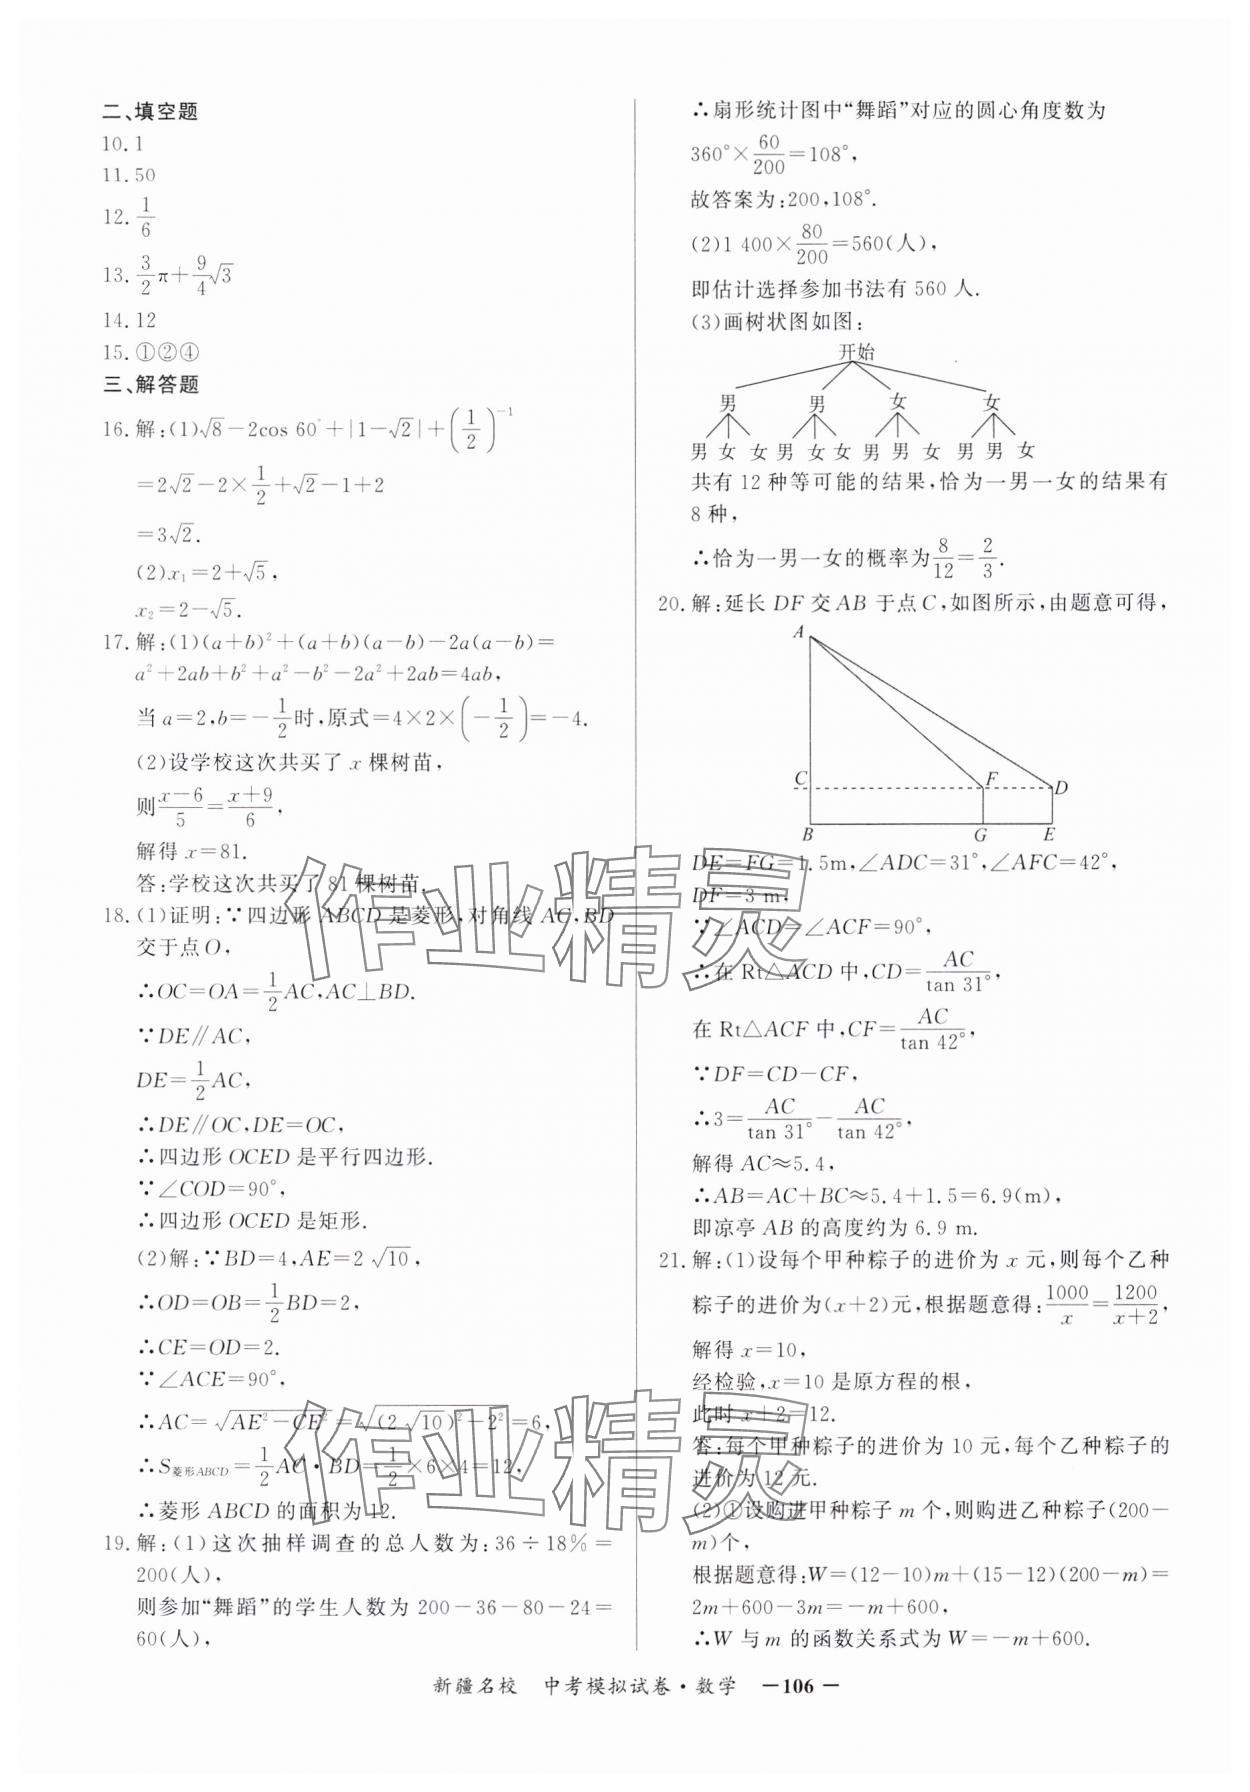 二、填空题
10.1
11.50
12.1/6
13.3/2π+9/4√3
14.12
15.①②④
三、解答题
16.解:(1)√8-2cos 60°+|1-√2|+(1/2)^-1
=2√2-2×1/2+√2-1+2
=3√2.
(2)x₁=2+√5,
x₂=2-√5.
17.解:(1)(a+b)²+(a+b)(a-b)-2a(a-b)=
a²+2ab+b²+a²-b²-2a²+2ab=4ab,
当a=2,b=-1/2时,原式=4×2×(-1/2)=-4.
(2)设学校这次共买了 x 棵树苗,
则(x-6)/5=(x+9)/6,
解得 x=81.
答:学校这次共买了 81 棵树苗.
18.(1)证明:∵四边形 ABCD 是菱形,对角线 AC,BD
交于点O,
∴OC=OA=1/2AC,AC⊥BD.
∵DE∥AC,
DE=1/2AC,
∴DE∥OC,DE=OC,
∴四边形 OCED 是平行四边形.
∵∠COD=90°,
∴四边形 OCED 是矩形.
(2)解:∵BD=4,AE=2√10,
∴OD=OB=1/2BD=2,
∴CE=OD=2.
∵∠ACE=90°,
∴AC=√(AE²-CE²)=√((2√10)²-2²)=6,
∴S菱形ABCD=1/2AC·BD=1/2×6×4=12,
∴菱形 ABCD 的面积为 12.
19.解:(1)这次抽样调查的总人数为:36÷18%=
200(人),
则参加“舞蹈”的学生人数为 200-36-80-24=
60(人),
∴扇形统计图中“舞蹈”对应的圆心角度数为
360°×60/200=108°,
故答案为:200,108°.
(2)1 400×80/200=560(人),
即估计选择参加书法有 560 人.
(3)画树状图如图:
开始
男 男 女 女
男 女 女 男 女 女 男 男 女 男 男 女
共有 12 种等可能的结果,恰为一男一女的结果有
8种,
∴恰为一男一女的概率为8/12=2/3.
20.解:延长 DF 交 AB 于点 C,如图所示,由题意可得,
A
C F D
B G E
DE=FG=1.5m,∠ADC=31°,∠AFC=42°,
DF=3 m,
∵∠ACD=∠ACF=90°,
∴在 Rt△ACD 中,CD=AC/tan 31°,
在 Rt△ACF 中,CF=AC/tan 42°,
∵DF=CD-CF,
∴3=AC/tan 31°-AC/tan 42°,
解得 AC≈5.4,
∴AB=AC+BC≈5.4+1.5=6.9(m),
即凉亭 AB 的高度约为 6.9 m.
21.解:(1)设每个甲种粽子的进价为 x 元,则每个乙种
粽子的进价为(x+2)元,根据题意得:1000/x=1200/(x+2),
解得 x=10,
经检验,x=10 是原方程的根,
此时 x+2=12.
答:每个甲种粽子的进价为 10 元,每个乙种粽子的
进价为 12 元.
(2)①设购进甲种粽子 m 个,则购进乙种粽子(200-
m)个,
根据题意得:W=(12-10)m+(15-12)(200-m)=
2m+600-3m=-m+600,
∴W 与 m 的函数关系式为 W=-m+600.
新疆名校 中考模拟试卷·数学 —106—
作业精灵
作业精灵